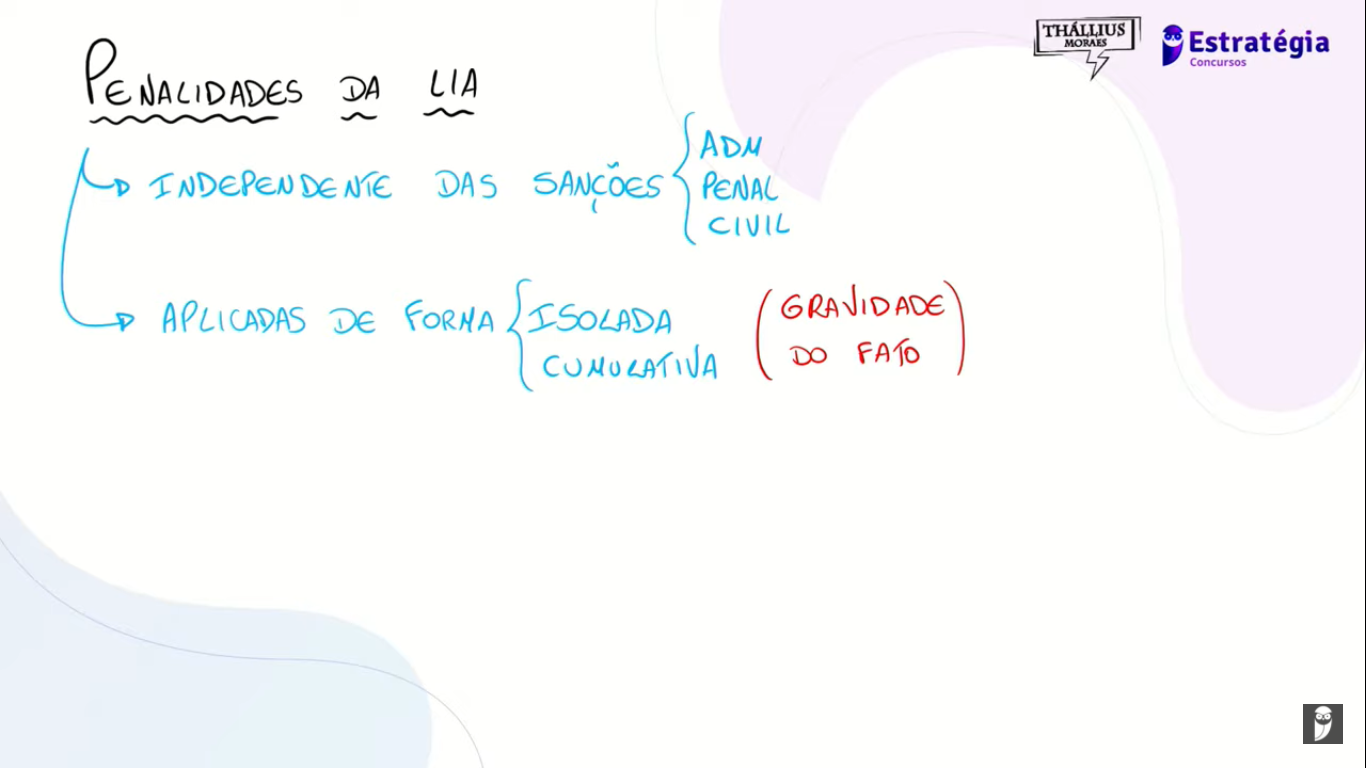 THÁLLIUS
MORAES
Estratégia
Concursos
PENALIDADES DA LIA
INDEPENDENTE DAS SANÇÕES
ADM
PENAL
CIVIL
APLICADAS DE FORMA
ISOLADA
CUMULATIVA
(GRAVIDADE
DO FATO)